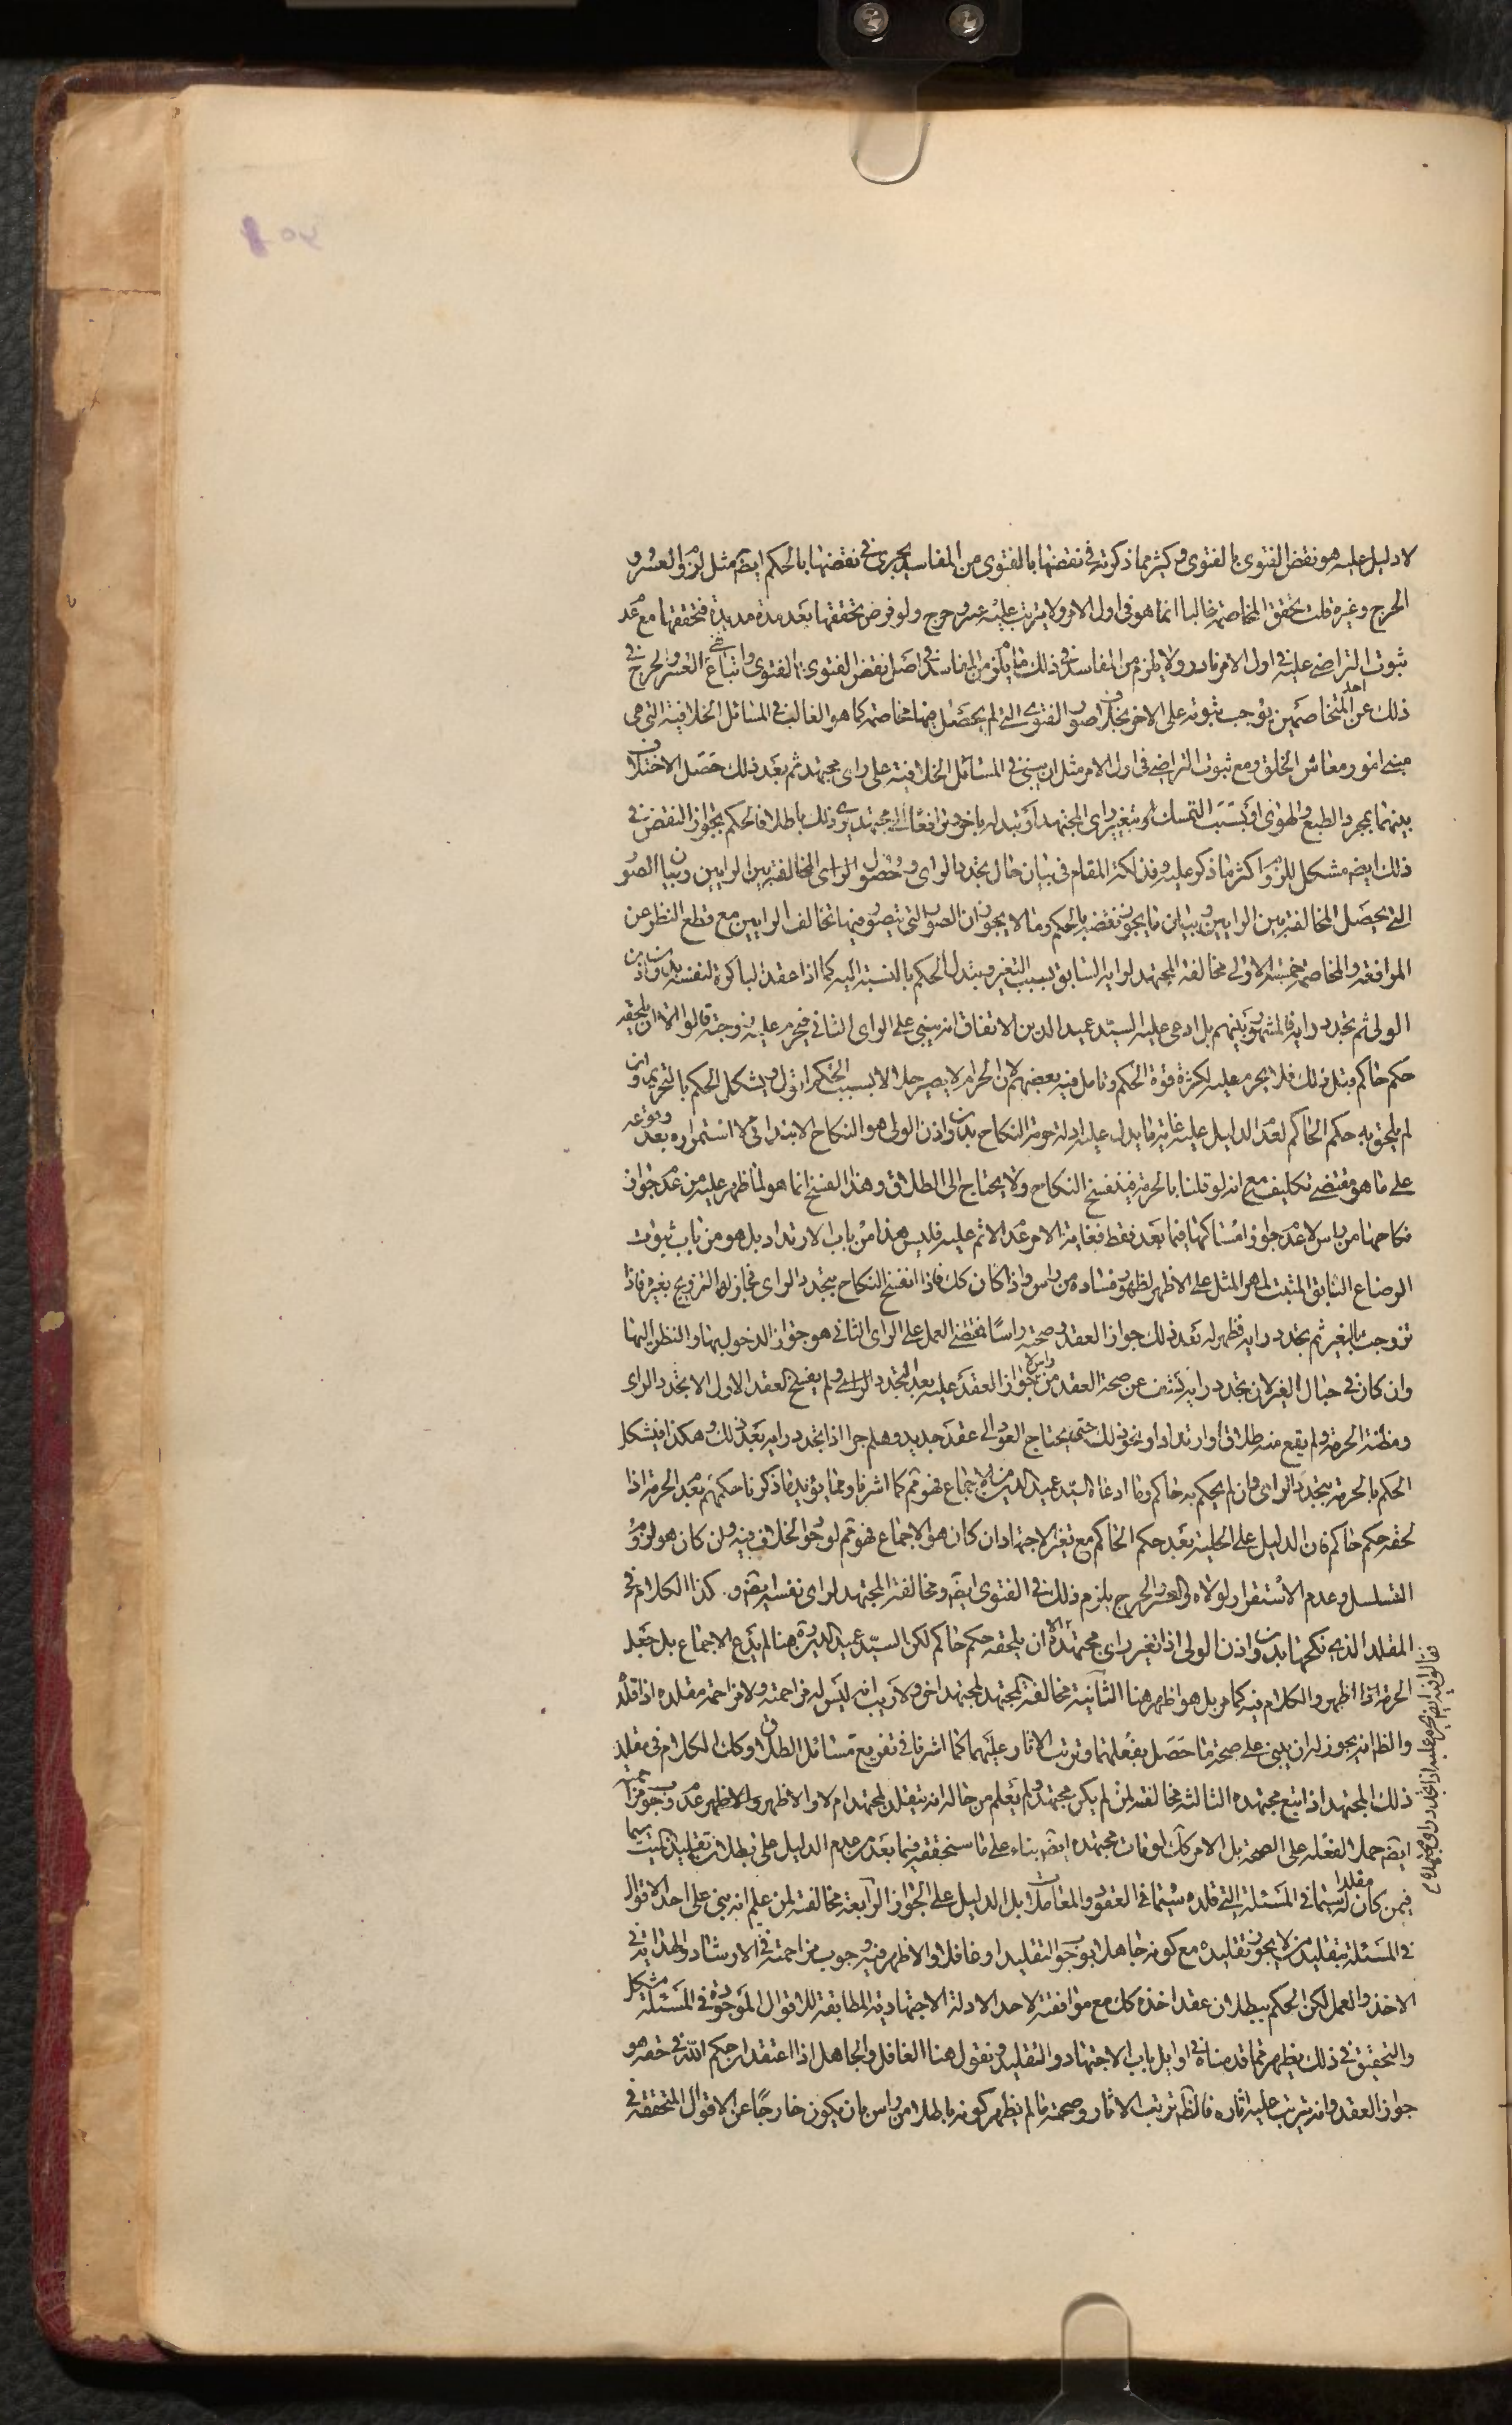 لا دليل عليه هو نقض الفتوى بالفتوى وكثير مما ذكرته في نقضها بالفتوى من المفاسد يجرى في نقضها بالحكم ايضا مثل لزوم العسر و
الحرج وغيره قلت تحقق المخاصمة غالبا انما هو في اول الامر ولا يترتب عليه عسر وحرج ولو فرض تحققها بعد مدة مديدة فتحققها مع عدم
ثبوت التراضي عليه في اول الامر نادر ولا يلزم من المفاسد في ذلك ما يلزم من المفاسد في اصل نقض الفتوى بالفتوى واتباع العسر والحرج في
ذلك عن احد المتخاصمين يوجب ثبوته على الاخر بخلاف صور الفتوى التي لم يحصل فيها مخاصمة كما هو الغالب في المسائل الخلافية التي هي
مبنى امور معاش الخلق ومع ثبوت التراضي في اول الامر مثل ان يبنى في المسائل الخلافية على راى مجتهد ثم بعد ذلك حصل الاختلاف
بينهما بمجرد الطبع والهوى او بسبب التمسك بتغيير راى المجتهد او تبدله باخر وترافعا الى مجتهد يرى ذلك باطلا فالحكم بجواز النقض في
ذلك ايضا مشكل للزوم اكثر ما ذكر عليه وفذلكة المقام في بيان حال تجدد الراى وحصول الراى المخالفة بين الرايين وبيان الصور
التي يحصل المخالفة بين الرايين وبيان ما يجوز نقضه بالحكم وما لا يجوز ان الصور التي يتصور فيها تخالف الرايين مع قطع النظر عن
المرافعة والمخاصمة خمسة الاولى مخالفة المجتهد لرايه السابق بسبب التغير وتبدل الحكم بالنسبة اليه كما اذا عقد لباكرة لنفسه بدون اذن
الولى ثم تجدد رايه فالمشهور بينهم بل ادعى عليه السيد عميد الدين الاتفاق انه يبنى على الراى الثاني فيحرم عليه زوجته قالوا الا ان يلحقه
حكم حاكم قبل ذلك فلا يحرم عليه لكثرة قوة الحكم وتامل فيه بعضهم لان الحرام لا يصير حلالا بسبب الحكم اقول ويشكل الحكم بالتحريم وان
لم يلحق به حكم الحاكم لعدم الدليل عليه غاية ما يدل عليه ادلة حرمة النكاح بدون اذن الولى هو النكاح الابتدائي لا استمراره بعد وقوعه
على ما هو مقتضى تكليفه مع انه لو قلنا بالحرمة فينفسخ النكاح ولا يحتاج الى الطلاق وهذا الفسخ انما هو لما ظهر عليه من عدم جواز
نكاحها من راس لا عدم جواز امساكها فيما بعد فقط فغاية الامر عدم الاثم عليه فليس هذا من باب الارتداد بل هو من باب ثبوت
الرضاع السابق المثبت لمهر المثل على الاظهر لظهور فساده من راس واذا كان كك فاذا انفسخ النكاح بتجدد الراى فجاز لها التزويج بغيره فاذا
تزوجت بالغير ثم تجدد رايه فظهر له بعد ذلك جواز العقد وصحته راسا فمقتضى العمل على الراى الثاني هو جواز الدخول بها والنظر اليها
وان كان في حبال الغير لان تجدد رايه كشف عن صحة العقد من راس لا جواز العقد عليه بعد التجدد الراى ولم يفسخ العقد الاول الا تجدد الراى
ومظنة الحرمة ولم يقع منه طلاق او ارتداد او نحو ذلك حتى يحتاج العود الى عقد جديد وهلم جرا اذا تجدد رايه بعد ذلك وهكذا فيشكل
الحكم بالحرمة بتجدد الراى وان لم يحكم به حاكم وما ادعاه السيد عميد الدين من الاجماع فهو ثم كما اشرنا ومما يؤيد ما ذكرنا حكمهم بعدم الحرمة اذا
لحقه حكم حاكم فان الدليل على الحلية بعد حكم الحاكم مع تغير الاجتهاد ان كان هو الاجماع فهو ثم لوجود الخلاف فيه وان كان هو لزوم
التسلسل وعدم الاستقرار لولاه والعسر والحرج يلزم ذلك في الفتوى ايضا ومخالفة المجتهد لراى نفسه ايضا و. كذا الكلام في
المقلد الذي نكحها بدون اذن الولى اذا تغير راى مجتهده الا ان يلحقه حكم حاكم لكن السيد عميد الدين ره هنا لم يدع الاجماع بل جعل
الحرمة اذا اظهر والكلام فيه كما مر بل هو اظهر هنا الثانية مخالفة المجتهد لمجتهد اخر ولا ريب انه ليس له مزاحمته ولا مزاحمة مقلده اذا قلد
والظ انه يجوز له ان يبنى على صحة ما حصل بفعلهما وترتب الاثار عليهما كما اشرنا في تفريع مسائل الطلاق وكك الكلام في مقلد
ذلك المجتهد اذا اتبع مجتهده الثالثة مخالفته لمن لم يكن مجتهدا ولم يعلم من حاله انه يتقلد لمجتهد ام لا والاظهر والاظهر عدم وجوب مزاحمته
ايضا حملا لفعله على الصحة بل الامر كك لو فات مجتهده ايضا بناء على ما سنحققه فيما بعد من عدم الدليل على بطلان تقليد الميت سيما
فيمن كان مقلدا له سيما في المسئلة التي قلده سيما في العقود والمعاملات بل الدليل على الجواز الرابعة مخالفته لمن علم انه بنى على احد الاقوال
في المسئلة بتقليد من لا يجوز تقليده مع كونه جاهلا بوجوب التقليد او غافلا والاظهر فيه وجوب مزاحمته في الارشاد والهداية في
الاخذ والعمل لكن الحكم ببطلان عقد اخذه كك مع موافقته لاحد الادلة الاجتهادية المطابقة للاقوال الموجودة في المسئلة مشكل
والتحقيق في ذلك يظهر مما قدمناه في اوايل باب الاجتهاد والتقليد ونقول هنا الغافل والجاهل اذا اعتقد ان حكم الله في حقه هو
جواز العقد وانه يترتب عليه اثاره فالظ ترتب الاثار وصحته ما لم يظهر كونه باطلا من راس بان يكون خارجا عن الاقوال المتحققة في
قالوا فيه ايضا يحرم عليه اذا تجدد راى مجتهده